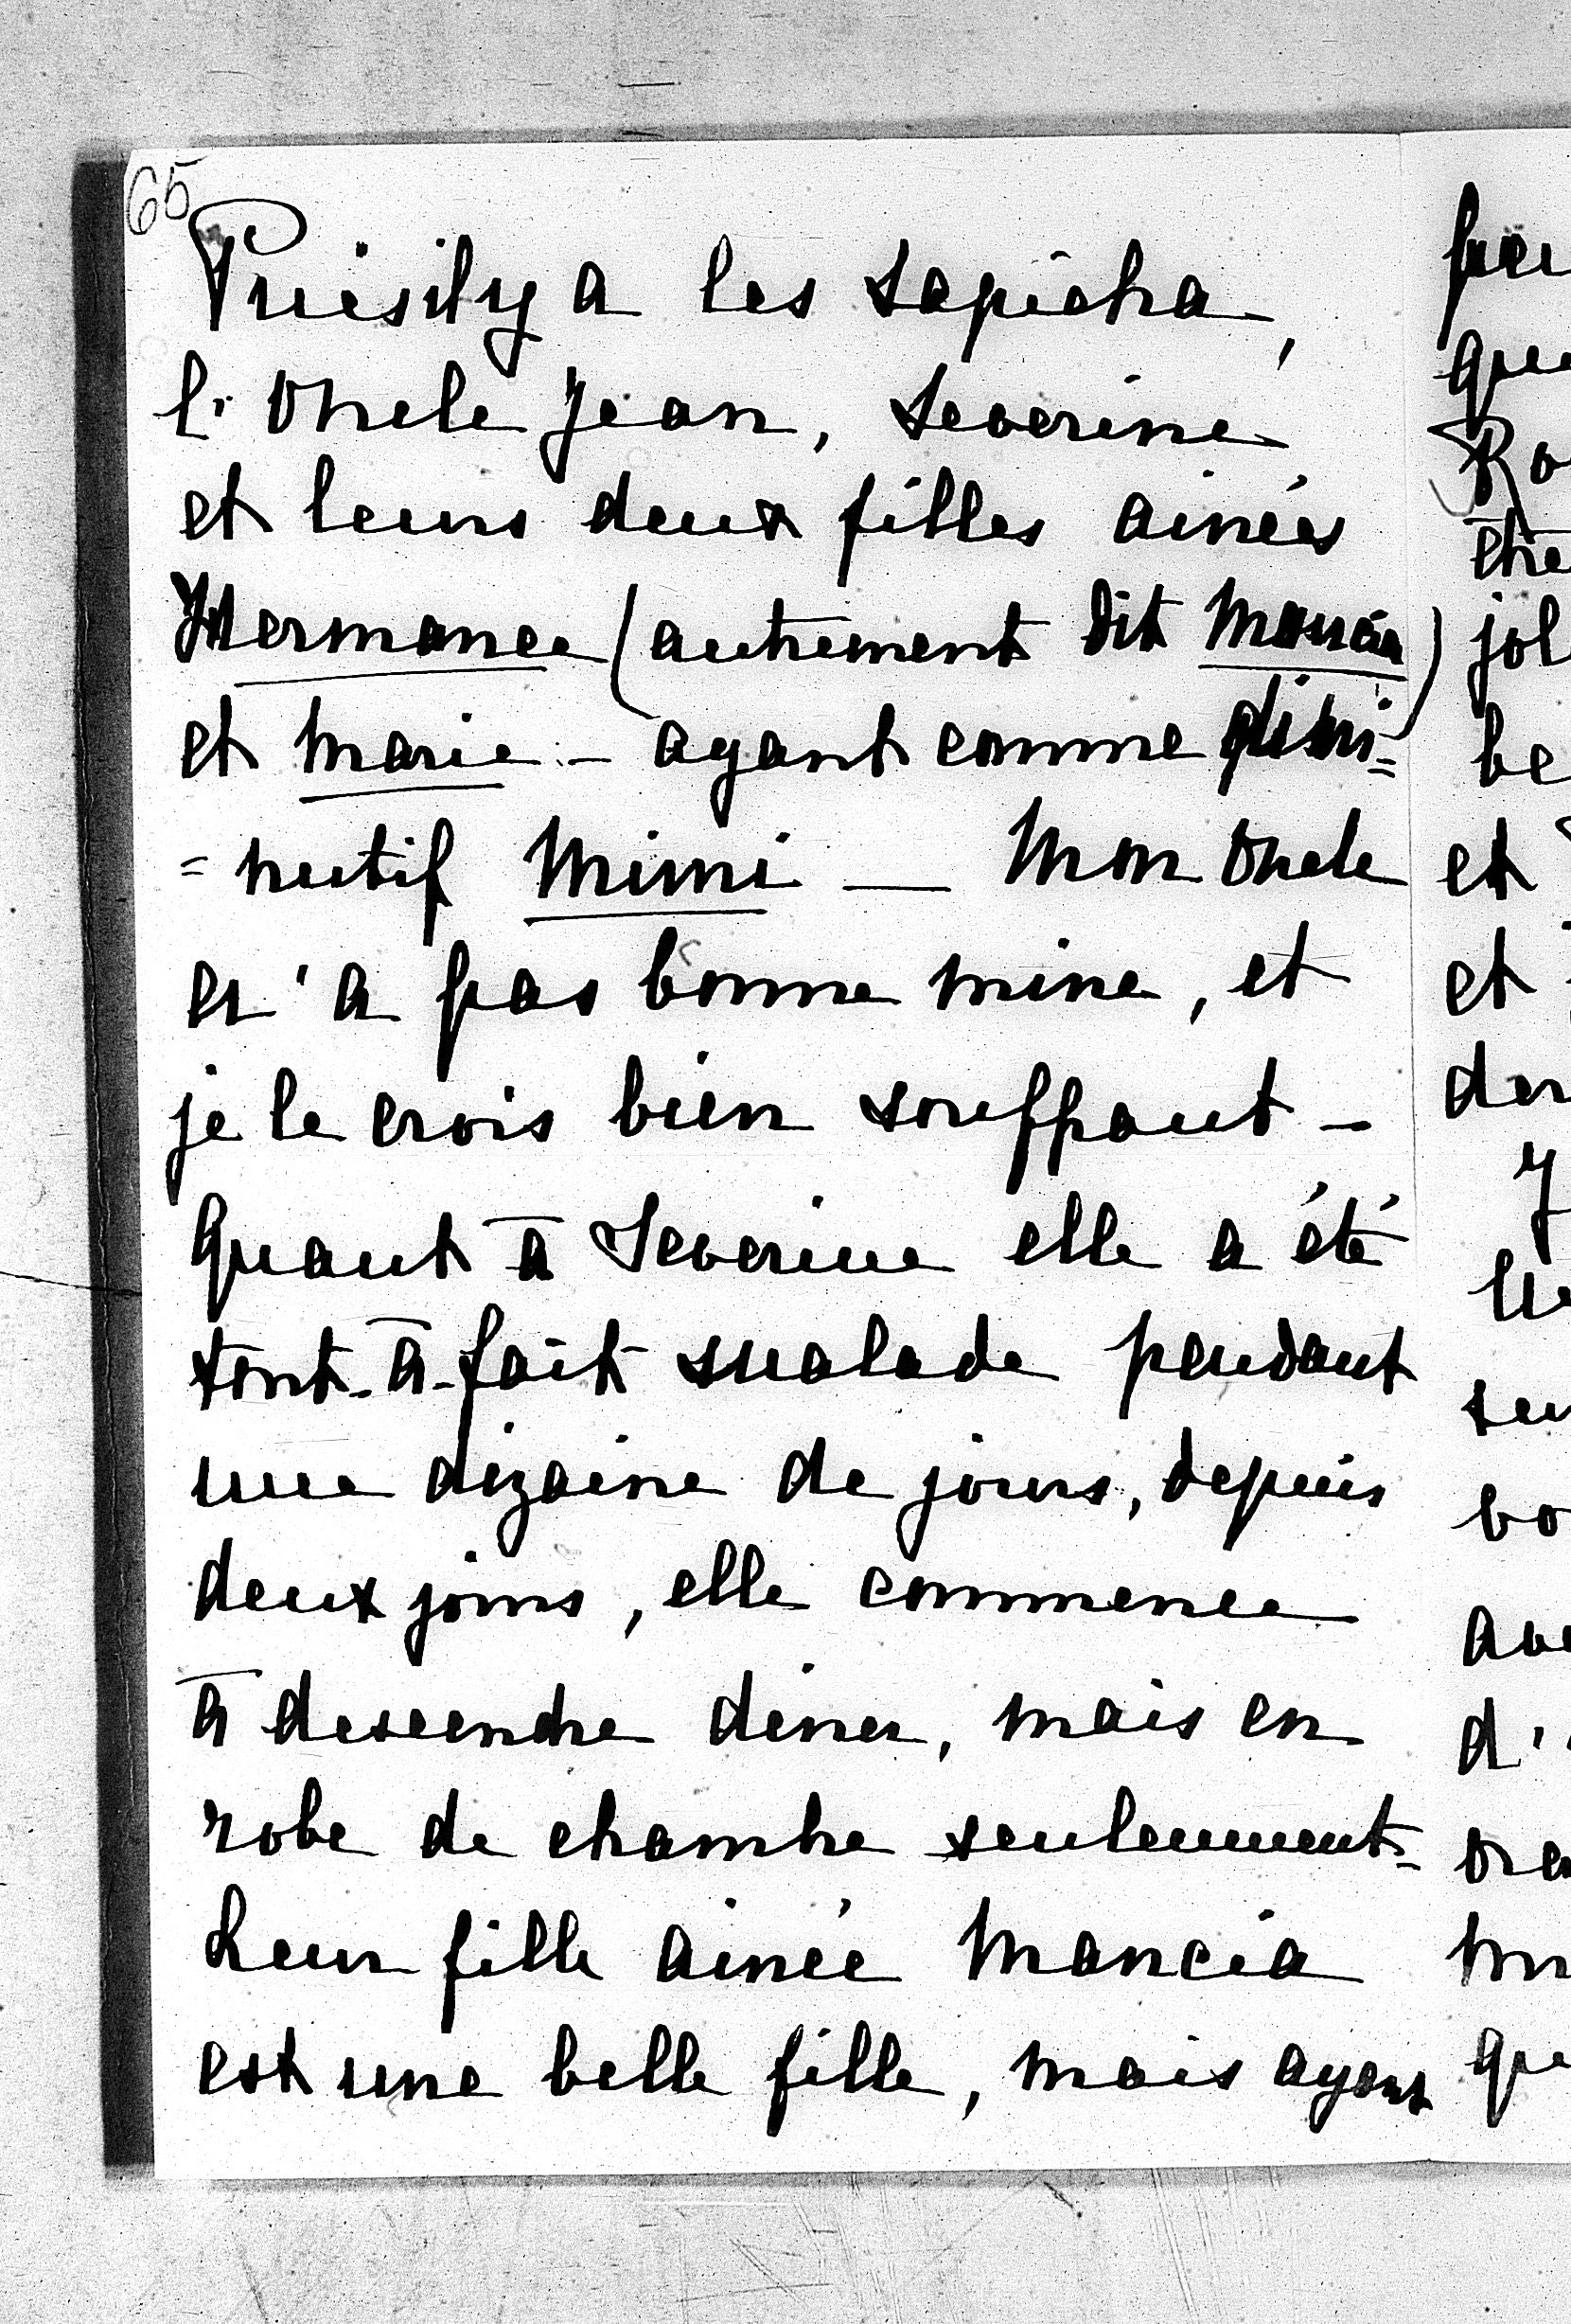 65
Puis il y a les Sapieha,
l'Oncle Jean, Severine
et leurs deux filles ainées
Hermance (autrement dit Mancia)
et Marie – ayant comme dimi=
=nutif Mimi — Mon Oncle
n'a pas bonne mine, et
je le crois bien souffrant –
Quant à Severine elle a été
tout-à-fait malade pendant
une dizaine de jours, depuis
deux jours, elle commence
à descendre diner, mais en
robe de chambre seulement.
Leur fille ainée Mancia
est une belle fille, mais ayant